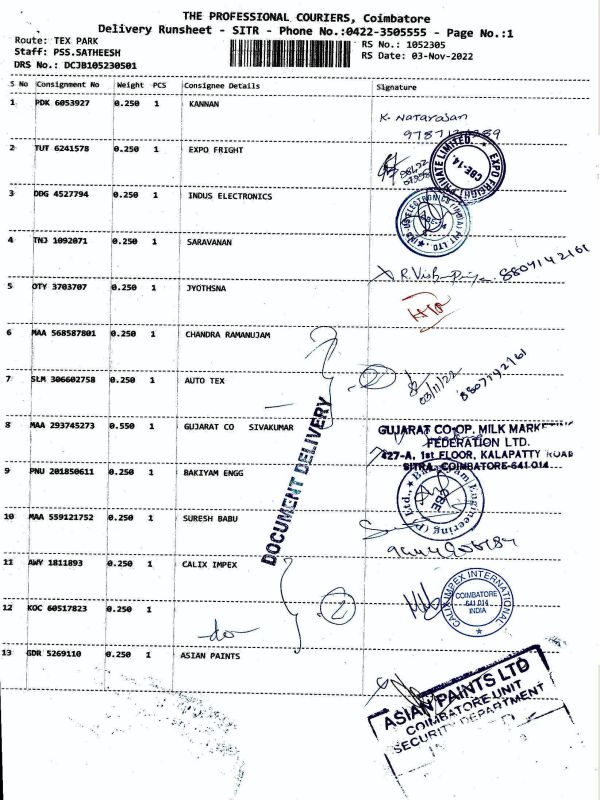 THE PROFESSIONAL COURIERS, Coimbatore
Delivery Runsheet - SITR - Phone No.:0422-3505555 - Page No.:1
Route: TEX PARK
RS No.: 1052305
Staff: PSS.SATHEESH
RS Date: 03-Nov-2022
DRS No.: DCJB105230501
S No Consignment No Weight PCS Consignee Details Signature
1 PDK 6053927 0.250 1 KANNAN
K. Natarajan
2 TUT 6241578 0.250 1 EXPO FRIGHT
EXPO FREIGHT PRIVATE LIMITED. CBE-14.
3 DDG 4527794 0.250 1 INDUS ELECTRONICS
4 TNJ 1092071 0.250 1 SARAVANAN
8807142161
5 OTY 3703707 0.250 1 JYOTHSNA
6 MAA 568587801 0.250 1 CHANDRA RAMANUJAM
7 SLM 306602758 0.250 1 AUTO TEX
2
03/11/22
8807142161
DOCUMENT DELIVERY
8 MAA 293745273 0.550 1 GUJARAT CO SIVAKUMAR
GUJARAT CO-OP. MILK
FEDERATION LTD.
427-A, 1st FLOOR, KALAPATTY ROAD
SITRA, COIMBATORE-641 014
9 PNU 201850611 0.250 1 BAKIYAM ENGG
Engineering (P) Ltd., CBE
10 MAA 559121752 0.250 1 SURESH BABU
11 AWY 1811893 0.250 1 CALIX IMPEX
CALIX IMPEX INTERNATIONAL
COIMBATORE
641 014
INDIA
12 KOC 60517823 0.250 1
2
do
13 GDR 5269110 0.250 1 ASIAN PAINTS
ASIAN PAINTS LTD
COIMBATORE UNIT
SECURITY DEPARTMENT